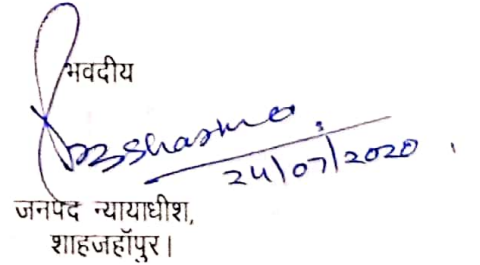 भवदीय
RBSharma
24/07/2020
जनपद न्यायाधीश,
शाहजहॉपुर।